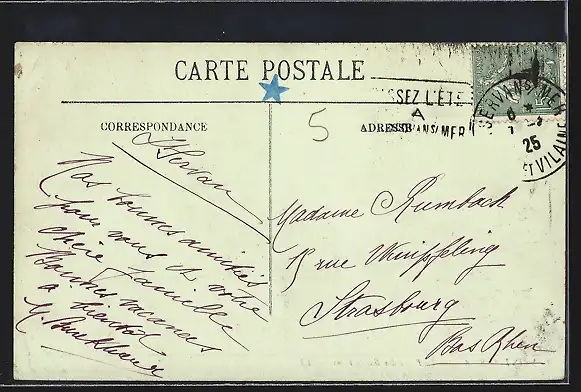 CARTE POSTALE
SSEZ L'ÉTÉ
A
SERVANS/MER
SERVANS/MER
25
ET VILAINE
CORRESPONDANCE
ADRESSE
5
St Servan
Nos bonnes amitiés
pour vous et votre
chère famille
Bonnes vacances
à bientôt
Madame Rumbach
15 rue Wimpfeling
Strasbourg
Bas Rhin